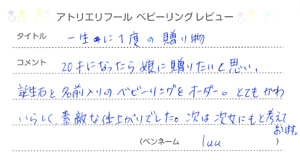 アトリエリフール ベビーリング レビュー
タイトル 一生に1度の贈り物
コメント 20才になったら娘に贈りたいと思い、
誕生石と名前入りのベビーリングをオーダー。とてもかわ
いらしく素敵な仕上がりでした。次は次女にもと考えて
おります。
(ペンネーム luu )